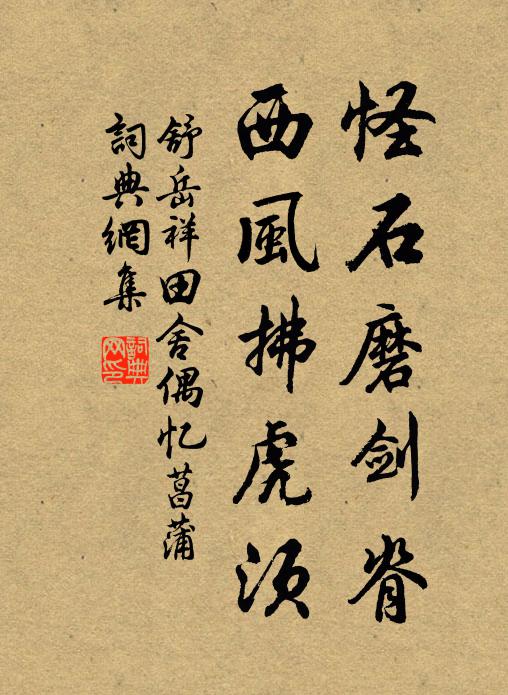 怪石磨剑脊
西風拂虎须
舒岳祥田舍偶忆菖蒲
詞典網集
詞典网印